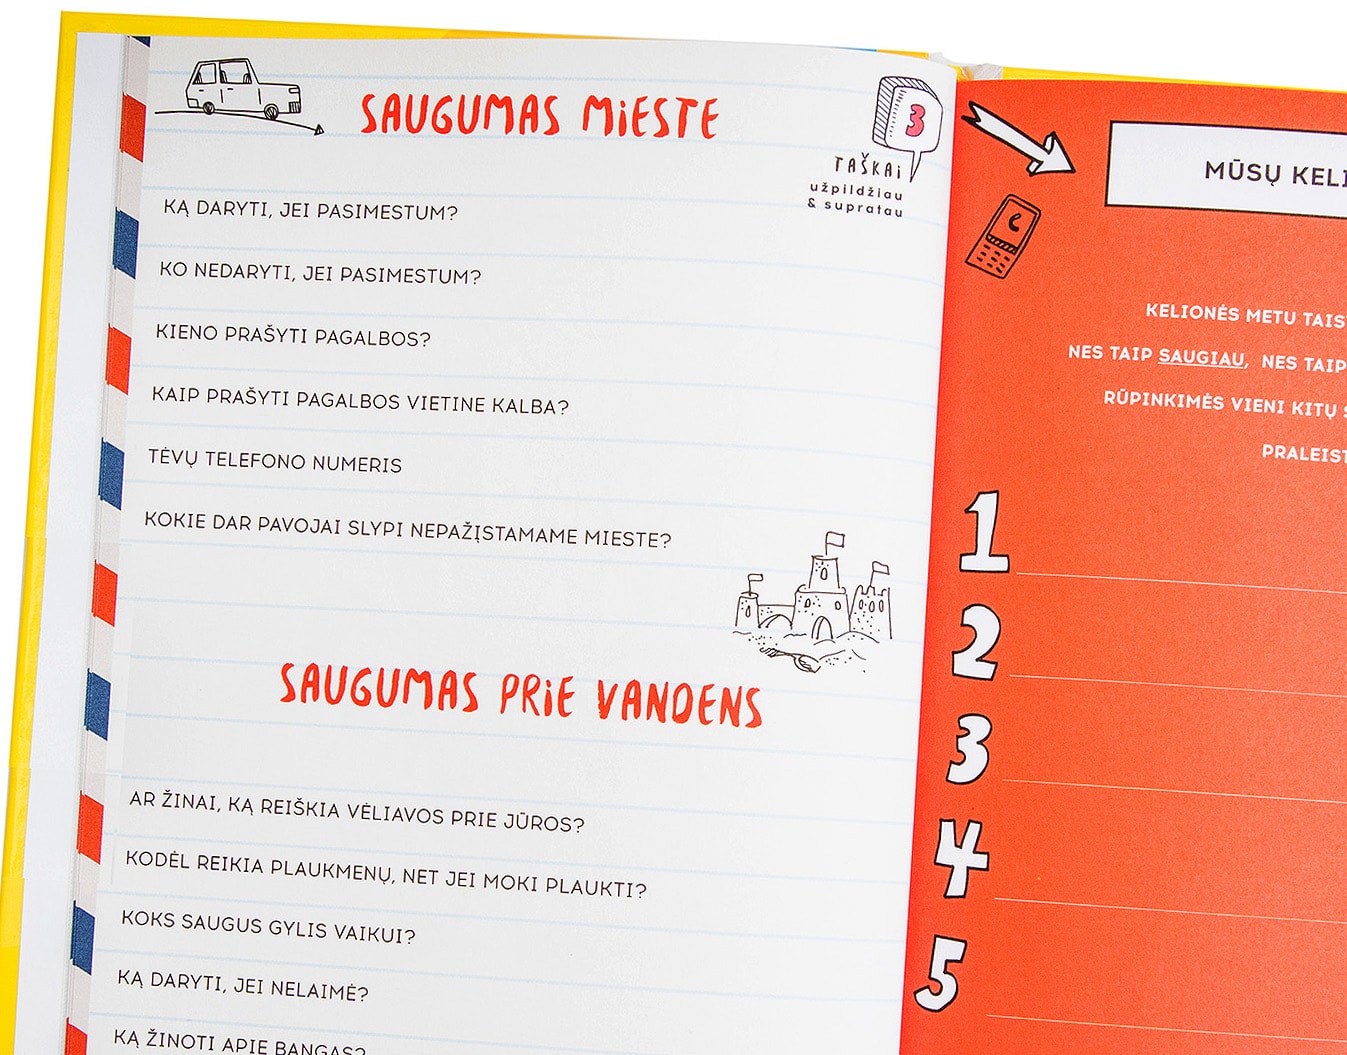 SAUGUMAS MIESTE
3
TAŠKAI
užpildžiau
& supratau
KĄ DARYTI, JEI PASIMESTUM?
KO NEDARYTI, JEI PASIMESTUM?
KIENO PRAŠYTI PAGALBOS?
KAIP PRAŠYTI PAGALBOS VIETINE KALBA?
TĖVŲ TELEFONO NUMERIS
KOKIE DAR PAVOJAI SLYPI NEPAŽĮSTAMAME MIESTE?
SAUGUMAS PRIE VANDENS
AR ŽINAI, KĄ REIŠKIA VĖLIAVOS PRIE JŪROS?
KODĖL REIKIA PLAUKMENŲ, NET JEI MOKI PLAUKTI?
KOKS SAUGUS GYLIS VAIKUI?
KĄ DARYTI, JEI NELAIMĖ?
KĄ ŽINOTI APIE BANGAS?
MŪSŲ KELI
KELIONĖS METU TAIS
NES TAIP SAUGIAU, NES TAIP
RŪPINKIMĖS VIENI KITŲ
PRALEIST
1
2
3
4
5